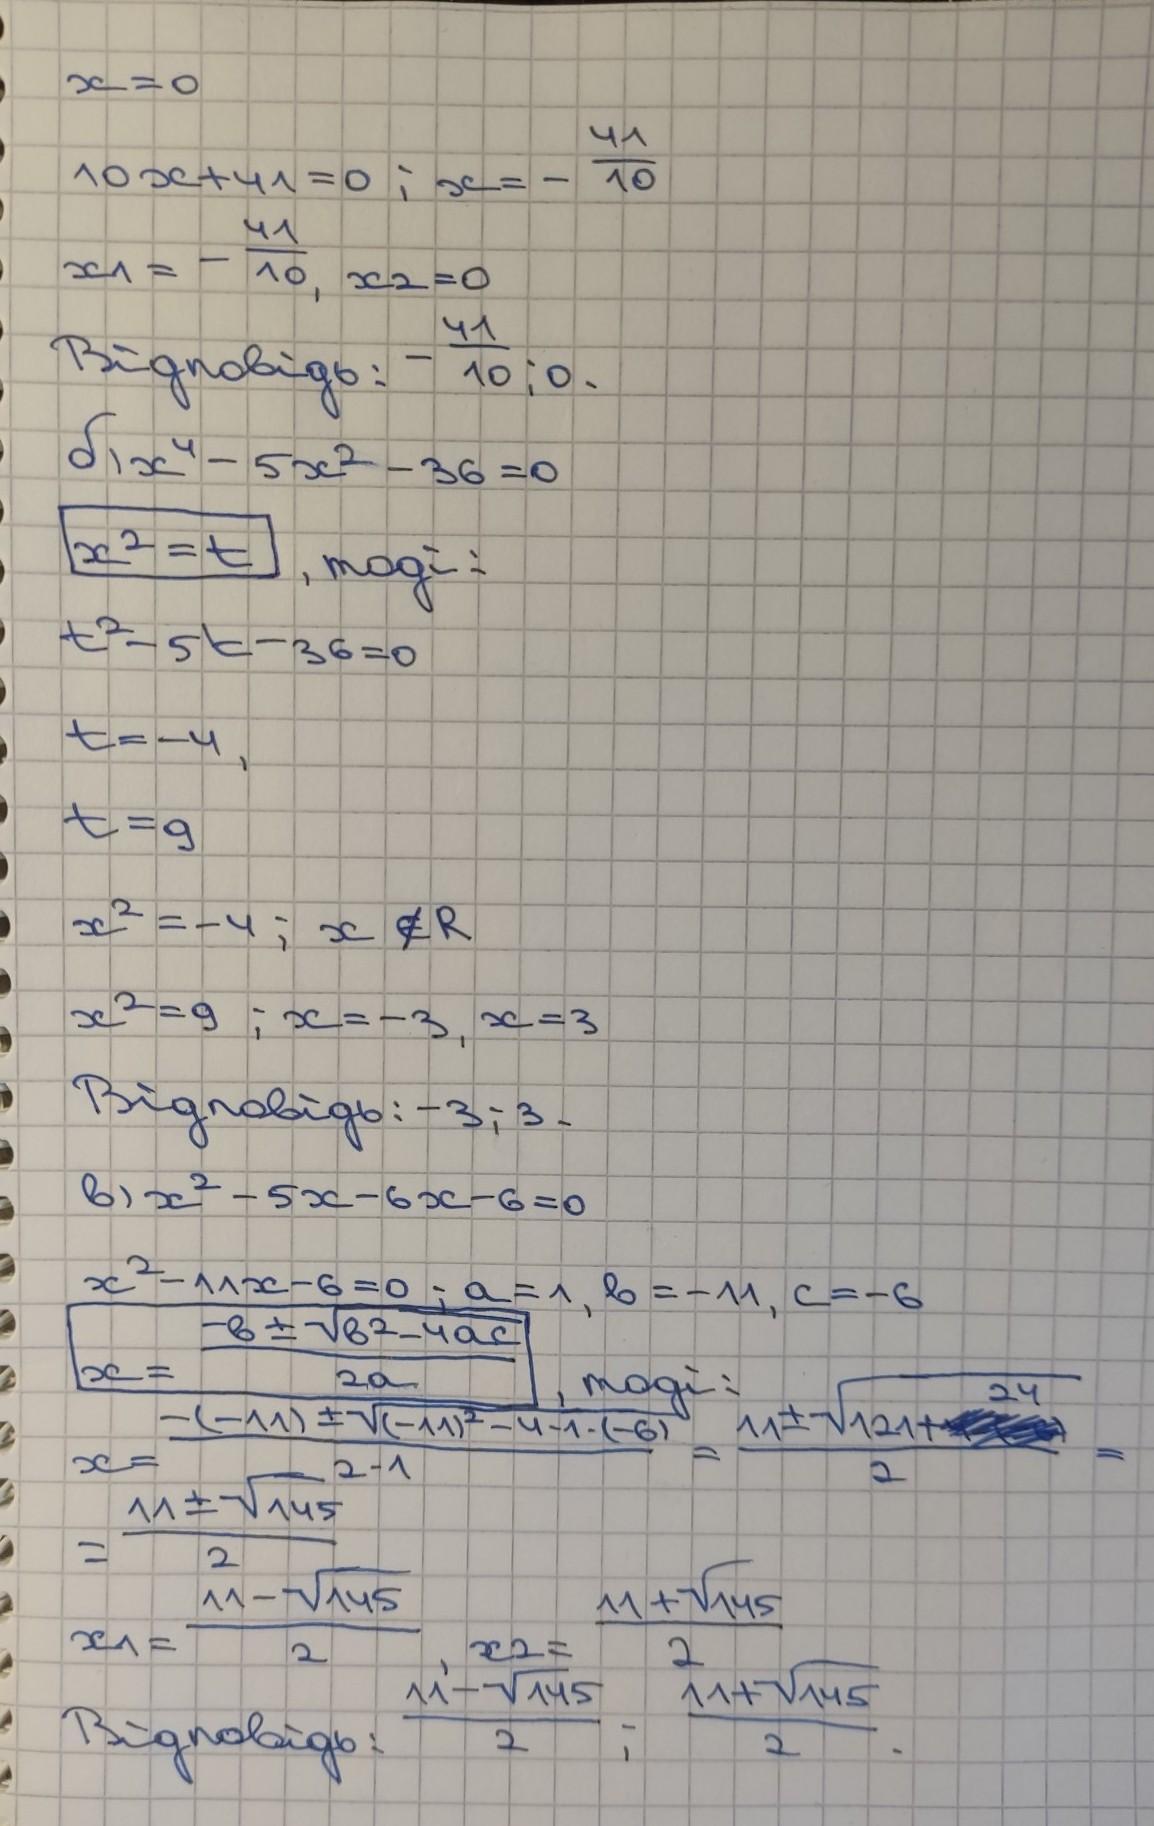 x=0
10x+41=0; x=-41/10
x1=-41/10, x2=0
Відповідь: -41/10; 0.
б) x⁴-5x²-36=0
x²=t, тоді:
t²-5t-36=0
t=-4,
t=9
x²=-4; x∉R
x²=9; x=-3, x=3
Відповідь: -3; 3.
в) x²-5x-6x-6=0
x²-11x-6=0; a=1, b=-11, c=-6
x=(-b±√(b²-4ac))/2a, тоді:
x=(-(-11)±√((-11)²-4·1·(-6)))/(2·1)=(11±√(121+24))/2=
=(11±√145)/2
x1=(11-√145)/2, x2=(11+√145)/2
Відповідь: (11-√145)/2; (11+√145)/2.